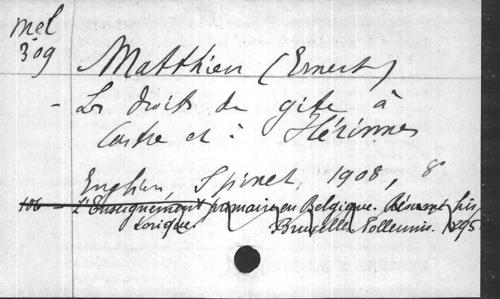 mel
309
Matthieu (Ernest)
- Les droits de gite à
Castre et à Hérinnes
Enghien, Spinet, 1908, 8°
106 - L'Enseignement primaire en Belgique. Résumé his
torique. Bruxelles Lollemis. 1895.